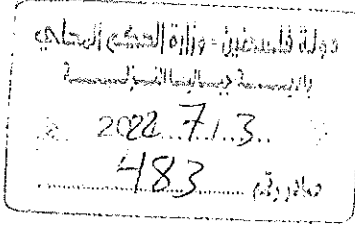 دولة فلسطين - وزارة الحكم المحلي
2022 7/3
صادر رقم 483